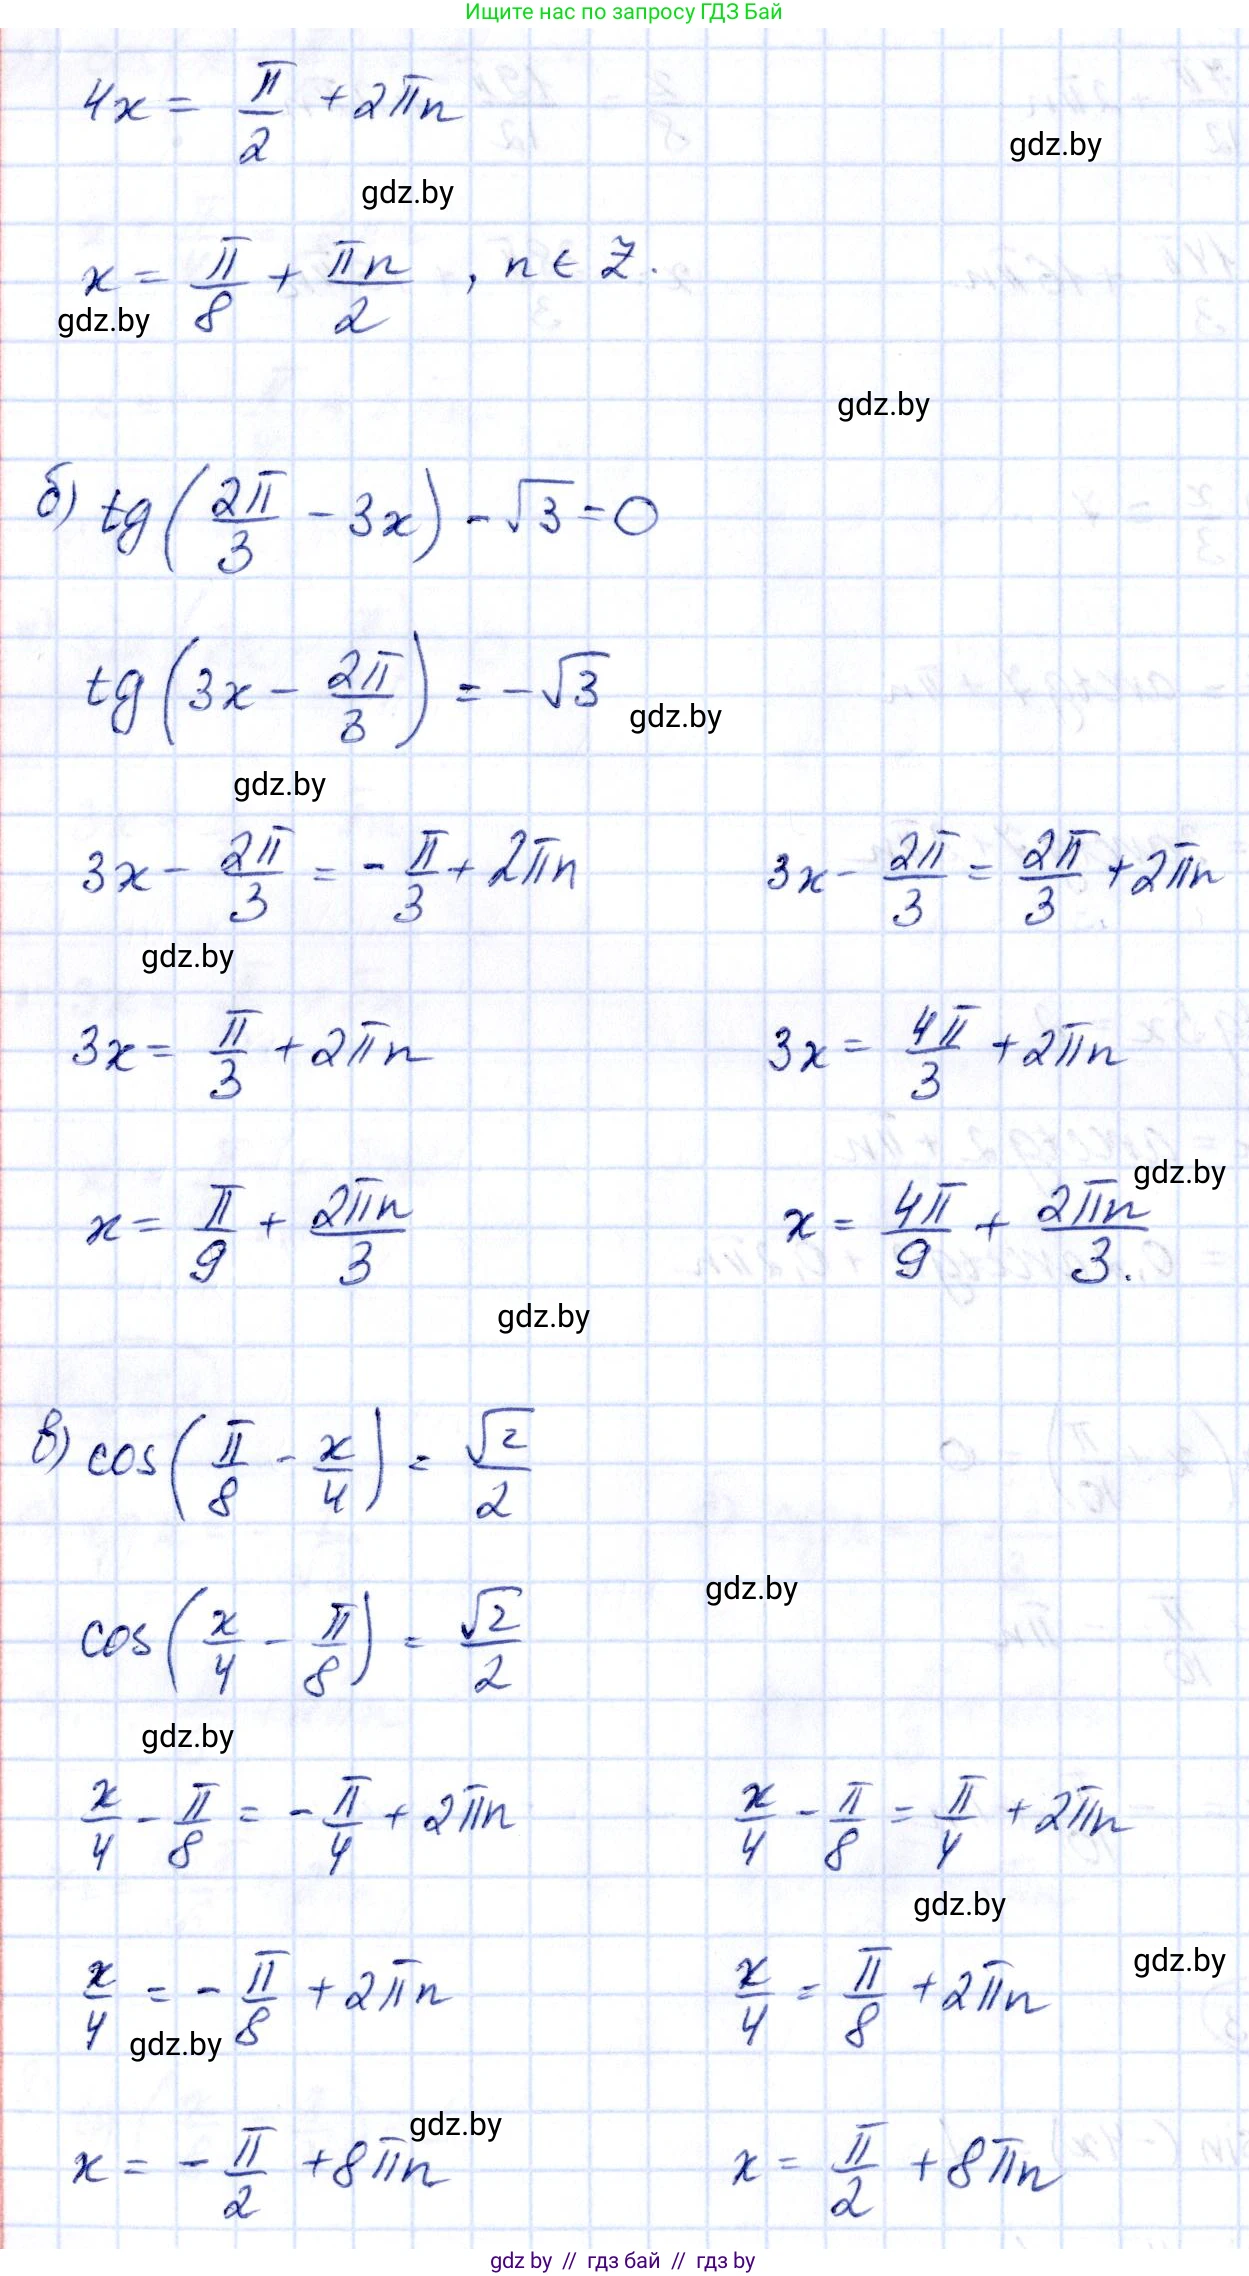 Ищите нас по запросу ГДЗ Бай
4x = π/2 + 2πn
gdz.by
gdz.by
x = π/8 + πn/2 , n ∈ Z.
gdz.by
gdz.by
б) tg(2π/3 - 3x) - √3 = 0
tg(3x - 2π/3) = -√3
gdz.by
gdz.by
3x - 2π/3 = - π/3 + 2πn    3x - 2π/3 = 2π/3 + 2πn
gdz.by
3x = π/3 + 2πn    3x = 4π/3 + 2πn
gdz.by
x = π/9 + 2πn/3    x = 4π/9 + 2πn/3.
gdz.by
в) cos(π/8 - x/4) = √2/2
gdz.by
cos(x/4 - π/8) = √2/2
gdz.by
x/4 - π/8 = - π/4 + 2πn    x/4 - π/8 = π/4 + 2πn
gdz.by
gdz.by
x/4 = - π/8 + 2πn    x/4 = π/8 + 2πn
gdz.by
gdz.by
x = - π/2 + 8πn    x = π/2 + 8πn
gdz by // гдз бай // гдз by